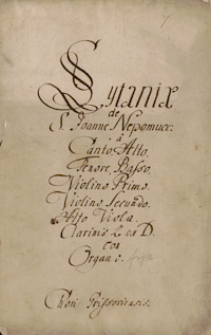 Lytaniæ
de
S. Joanne Nepomuc:
à
Canto, Alto,
Tenore, Basso,
Violino Primo.
Violino Secundo.
Alto Viola.
Clarinis 2. ex D.
Con
Organo.
Chori Grissoviensis.